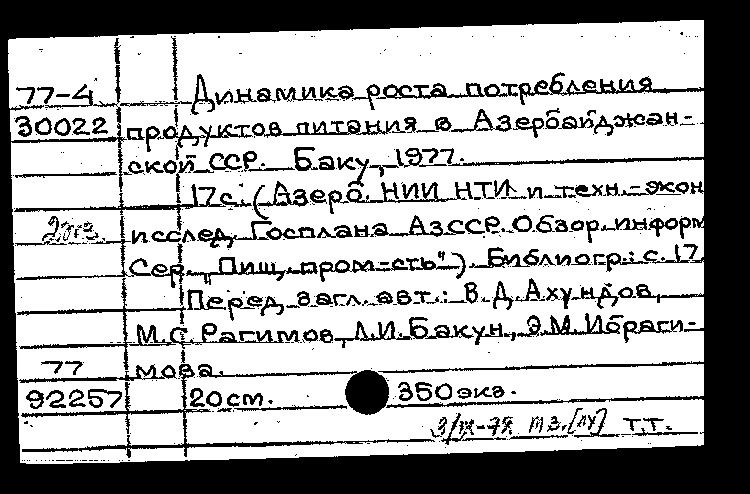 77-4 Динамика роста потребления
30022 продуктов питания в Азербайджан-
ской ССР. Баку, 1977.
17с. (Азерб. НИИ НТИ и техн.-экон
2экз. исслед. Госплана АзССР. Обзор. информ
Сер. "Пищ. пром-сть"). Библиогр.: с. 17.
Перед загл. авт.: В.Д.Ахундов,
М.С.Рагимов, Л.И.Бакун, Э.М.Ибраги-
77 мова.
92257 20см. 350экз.
Т.Т.